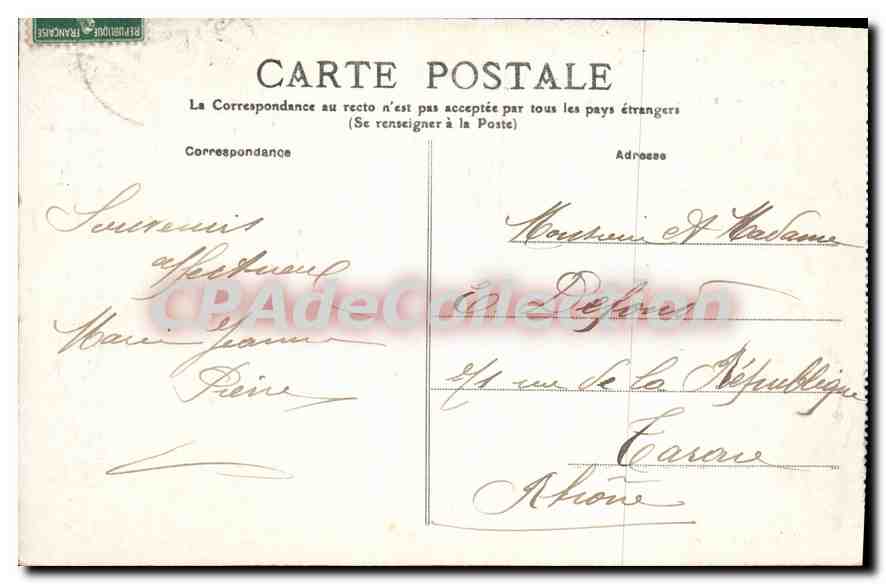 REPUBLIQUE FRANÇAISE
CARTE POSTALE
La Correspondance au recto n'est pas acceptée par tous les pays étrangers
(Se renseigner à la Poste)
Correspondance
Souvenirs
affectueux
Marie Jeanne
Pierre
Adresse
Monsieur et Madame
Defont
rue de la République
Tarare
Rhône
CPAdeCollection